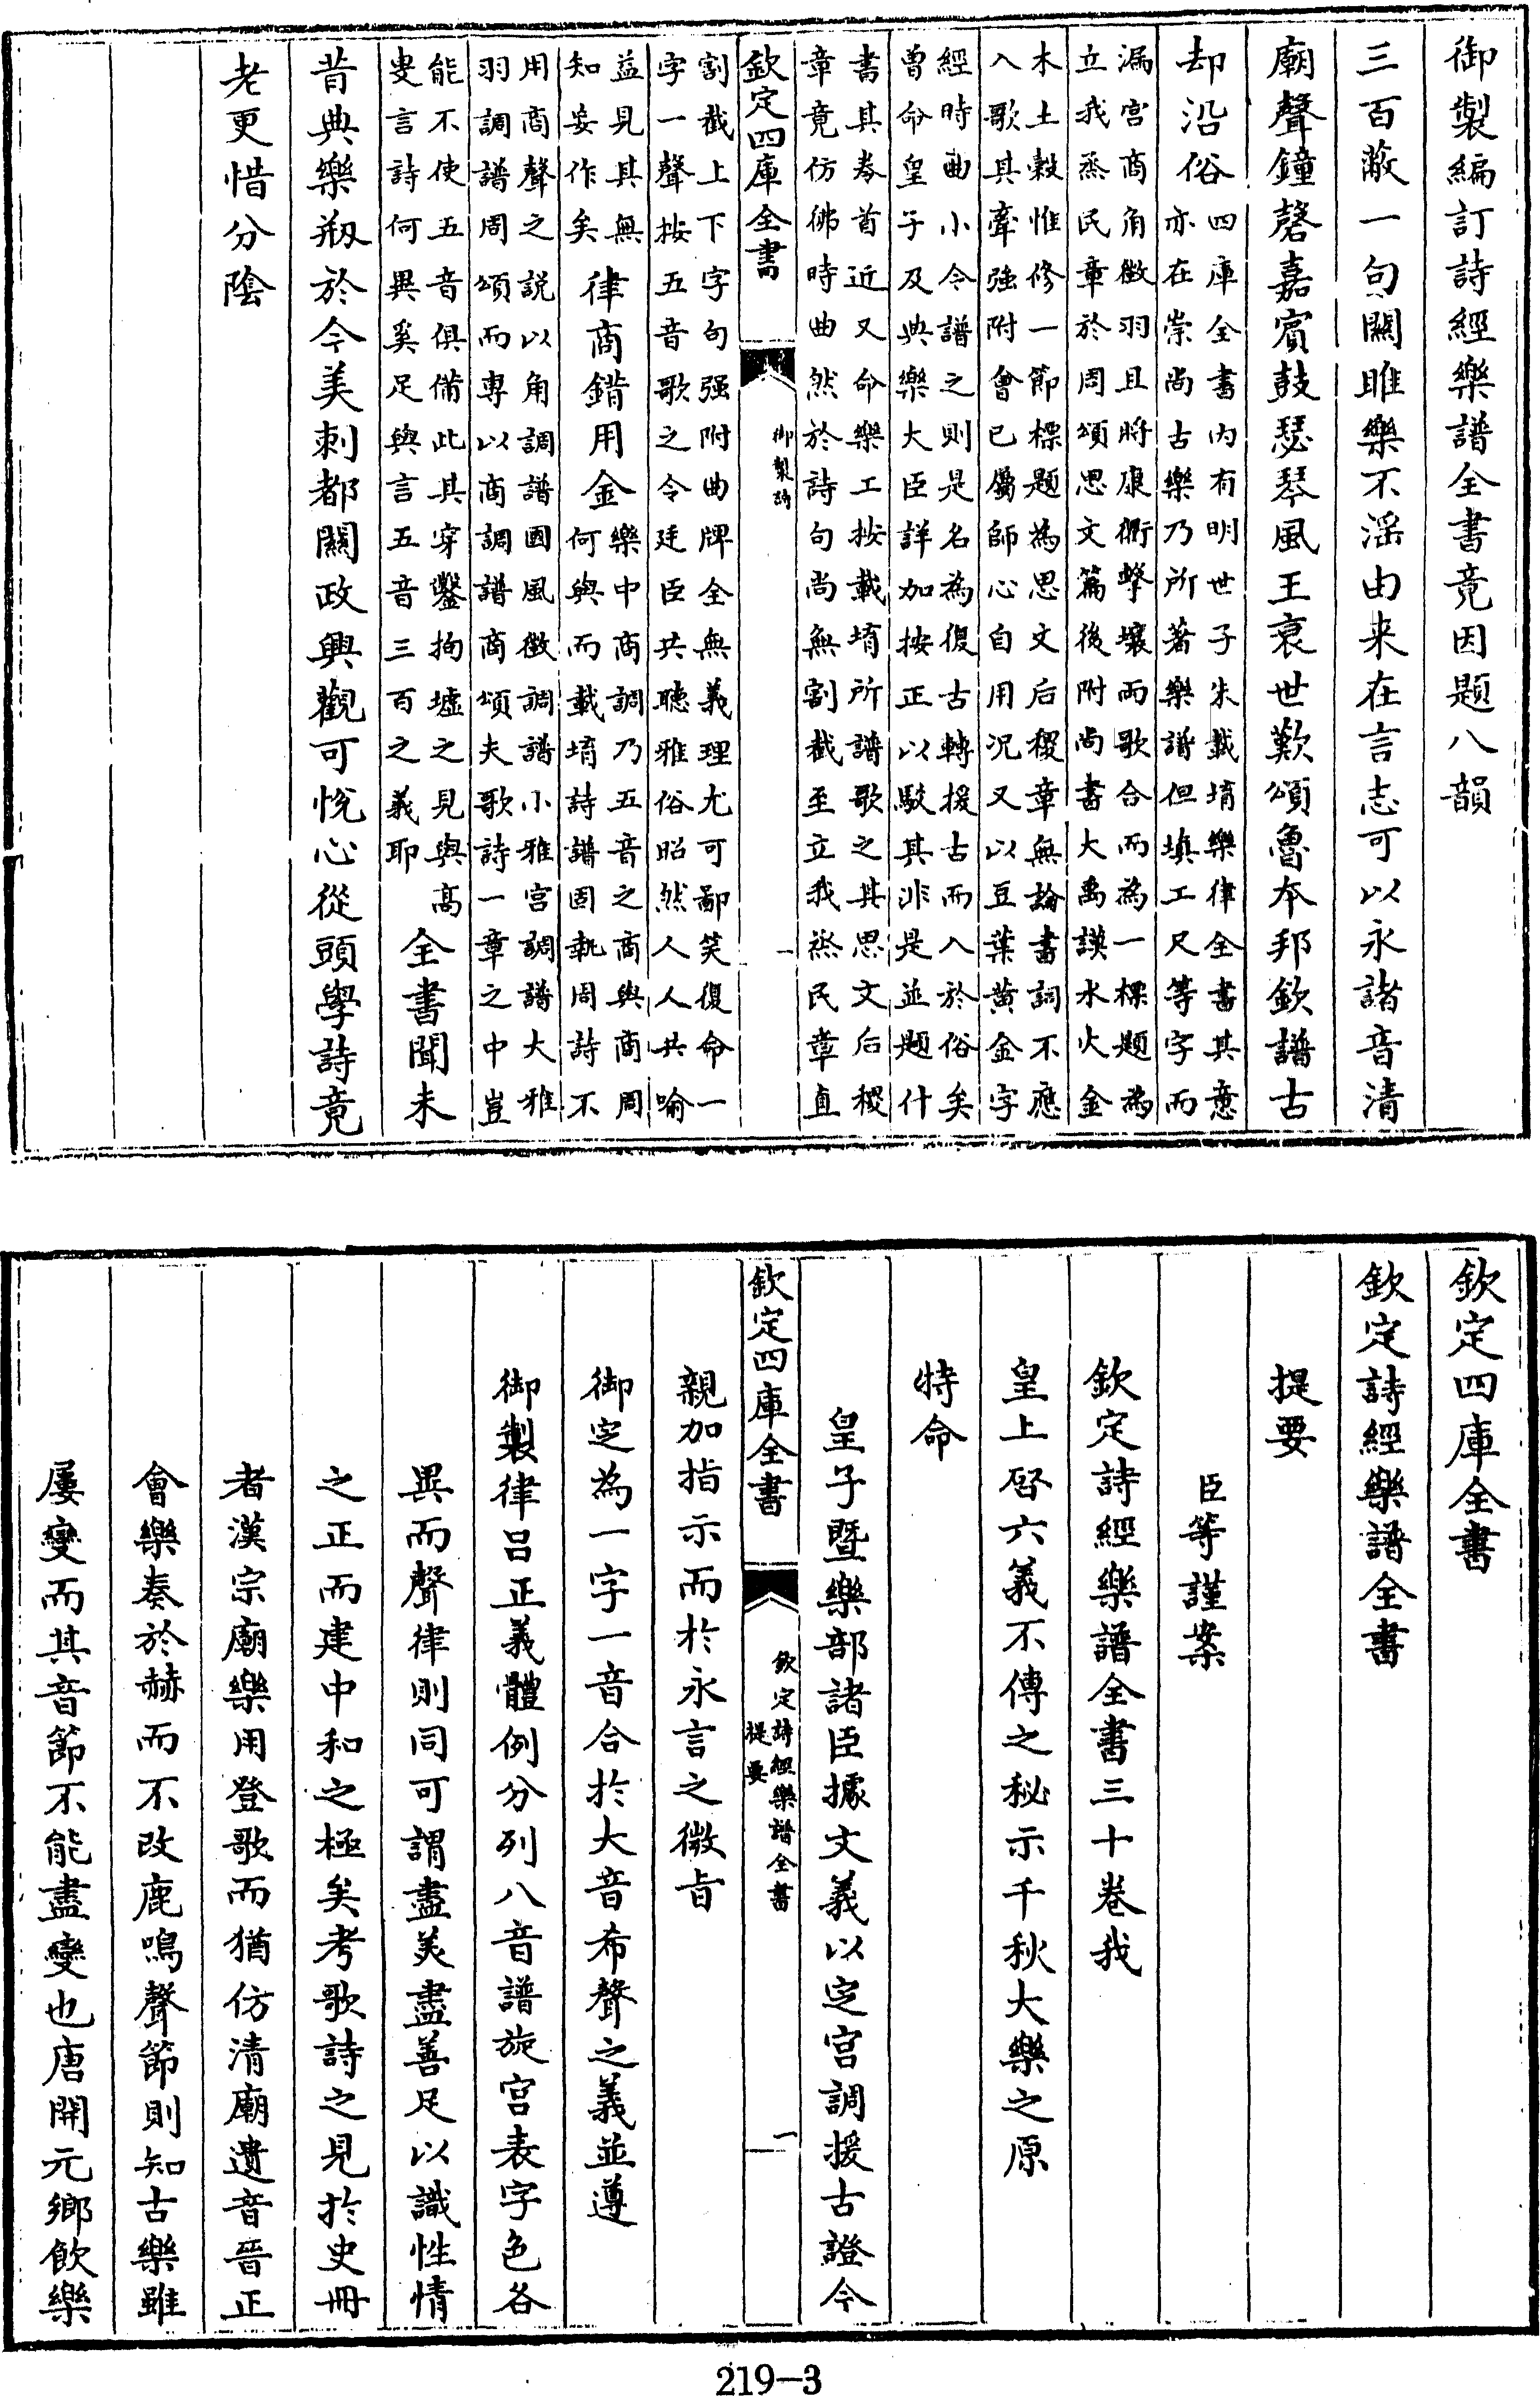 御製編訂詩經樂譜全書竟因題八韻
三百蔽一句關雎樂不滛由来在言志可以永諸音清
廟聲鐘磬嘉賓鼓瑟琴風王衰世歎頌魯本邦欽譜古
却沿俗
四庫全書內有明世子朱載堉樂律全書其意
亦在崇尚古樂乃所著樂譜但填工尺等字而
漏宫商角徵羽且將康衢擊壤而歌合而為一標題為
立我烝民章於周頌思文篇後附尚書大禹謨水火金
木土榖惟修一節標題為思文后稷章無論書詞不應
入歌其牽强附㑹已屬師心自用况又以豆葉黄金字
經時曲小令譜之則是名為復古轉援古而入於俗矣
曾命皇子及典樂大臣詳加按正以駮其非是並題什
書其卷首近又命樂工按載堉所譜歌之其思文后稷
章竟仿佛時曲然於詩句尚無割截至立我烝民章直
欽定四庫全書
御製詩
一
割截上下字句强附曲牌全無義理尤可鄙笑復命一
字一聲按五音歌之令廷臣共聽雅俗昭然人人共喻
益見其無
知妄作矣
律商錯用金
樂中商調乃五音之商與商周
何與而載堉詩譜固執周詩不
用商聲之説以角調譜國風徵調譜小雅宫調譜大雅
羽調譜周頌而專以商調譜商頌夫歌詩一章之中豈
能不使五音俱備此其穿鑿拘墟之見與高
叟言詩何異奚足與言五音三百之義耶
全書聞未
昔典樂刱於今美刺都關政興觀可悅心從頭學詩竟
老更惜分陰
欽定四庫全書
欽定詩經樂譜全書
提要
臣等謹案
欽定詩經樂譜全書三十卷我
皇上啓六義不傳之秘示千秋大樂之原
特命
皇子暨樂部諸臣據文義以定宫調援古證今
欽定四庫全書
欽定詩經樂譜全書
提要
一
親加指示而於永言之微旨
御定為一字一音合於大音希聲之義並遵
御製律吕正義體例分列八音譜旋宫表字色各
異而聲律則同可謂盡美盡善足以識性情
之正而建中和之極矣考歌詩之見於史冊
者漢宗廟樂用登歌而猶仿清廟遺音晉正
會樂奏於赫而不改鹿鳴聲節則知古樂雖
屢變而其音節不能盡變也唐開元鄉飲樂
219-3